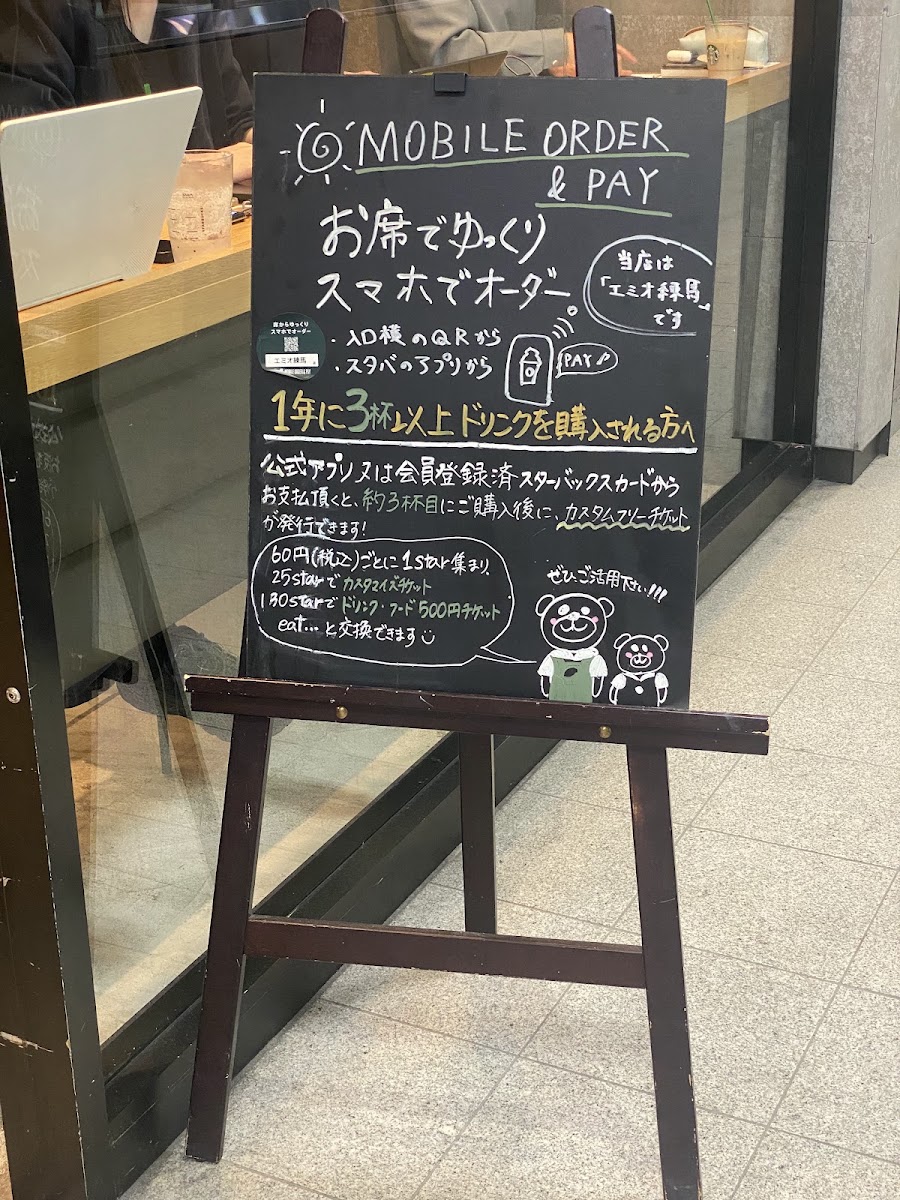 MOBILE ORDER
& PAY
お席でゆっくり
スマホでオーダー
当店は
「エミオ練馬」
です
・入口横のQRから
・スタバのアプリから
PAY♪
席からゆっくり
スマホでオーダー
エミオ練馬
1年に3杯以上ドリンクを購入される方へ
公式アプリ又は会員登録済スターバックスカードから
お支払頂くと、約3杯目にご購入後に、カスタムフリーチケット
が発行できます!
60円(税込)ごとに1star集まり、
25starでカスタマイズチケット
130starでドリンク・フード500円チケット
eat...と交換できます
ぜひご活用下さい!!!